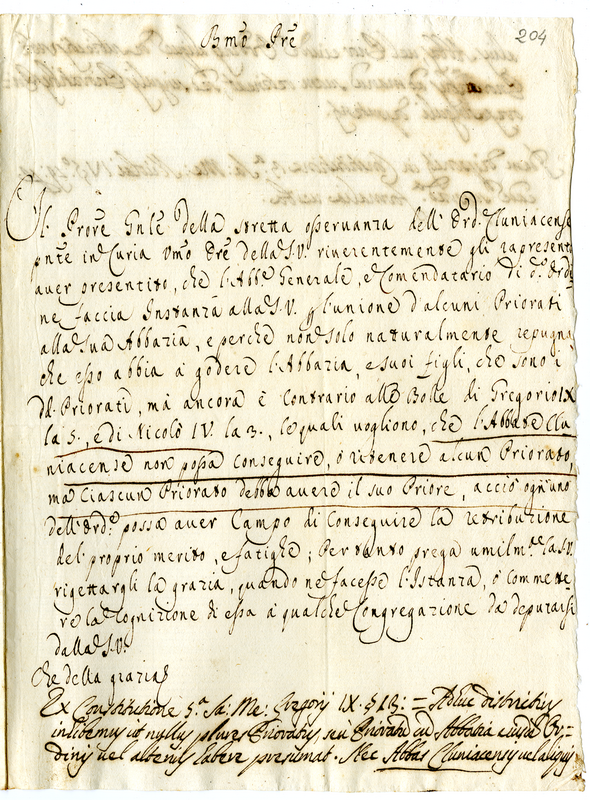 Bmo Pre
204
Il Prore Gnle della stretta osservanza dell' Ord. Cluniacense
pnte in Curia Umo Ore della S.V. riverentemente gli rapresenta
aver presentito, che l'Abbe Generale, e Comendatario di o. Ordi
ne faccia Instanza alla S.V. p l'unione d'alcuni Priorati
alla sua Abbazia, e perche non solo naturalmente repugna
che esso abbia à godere l'Abbazia, e suoi figli, che sono i
dd. Priorati, mà ancora è contrario alle Bolle di Gregorio IX
la 5., e di Nicolò IV. la 3., le quali vogliono, che l'Abbate Clu
niacense non possa conseguire, ò ritenere alcun Priorato,
ma ciascun Priorato debba avere il suo Priore, acciò ogn'uno
dell'Ord.e possa aver Campo di Conseguire la retribuzione
del proprio merito, e fatighe; Per tanto prega umilm.te la S.V.
rigettargli la grazia, quando ne facesse l'Istanza, ò commette
re la cognizione di essa à qualche Congregazione da depurarsi
dalla S.V.
Che della grazia
Ex Constitutione 5.a Sa: Me: Gregorij IX. § 13: = Adhuc districtius
inhibemus ut nullus plures Prioratus, seu Prioratu cu Abbatia eiusde Or=
dinis uel alterius habere presumat. Nec Abbas Cluniacensis uel aliquis